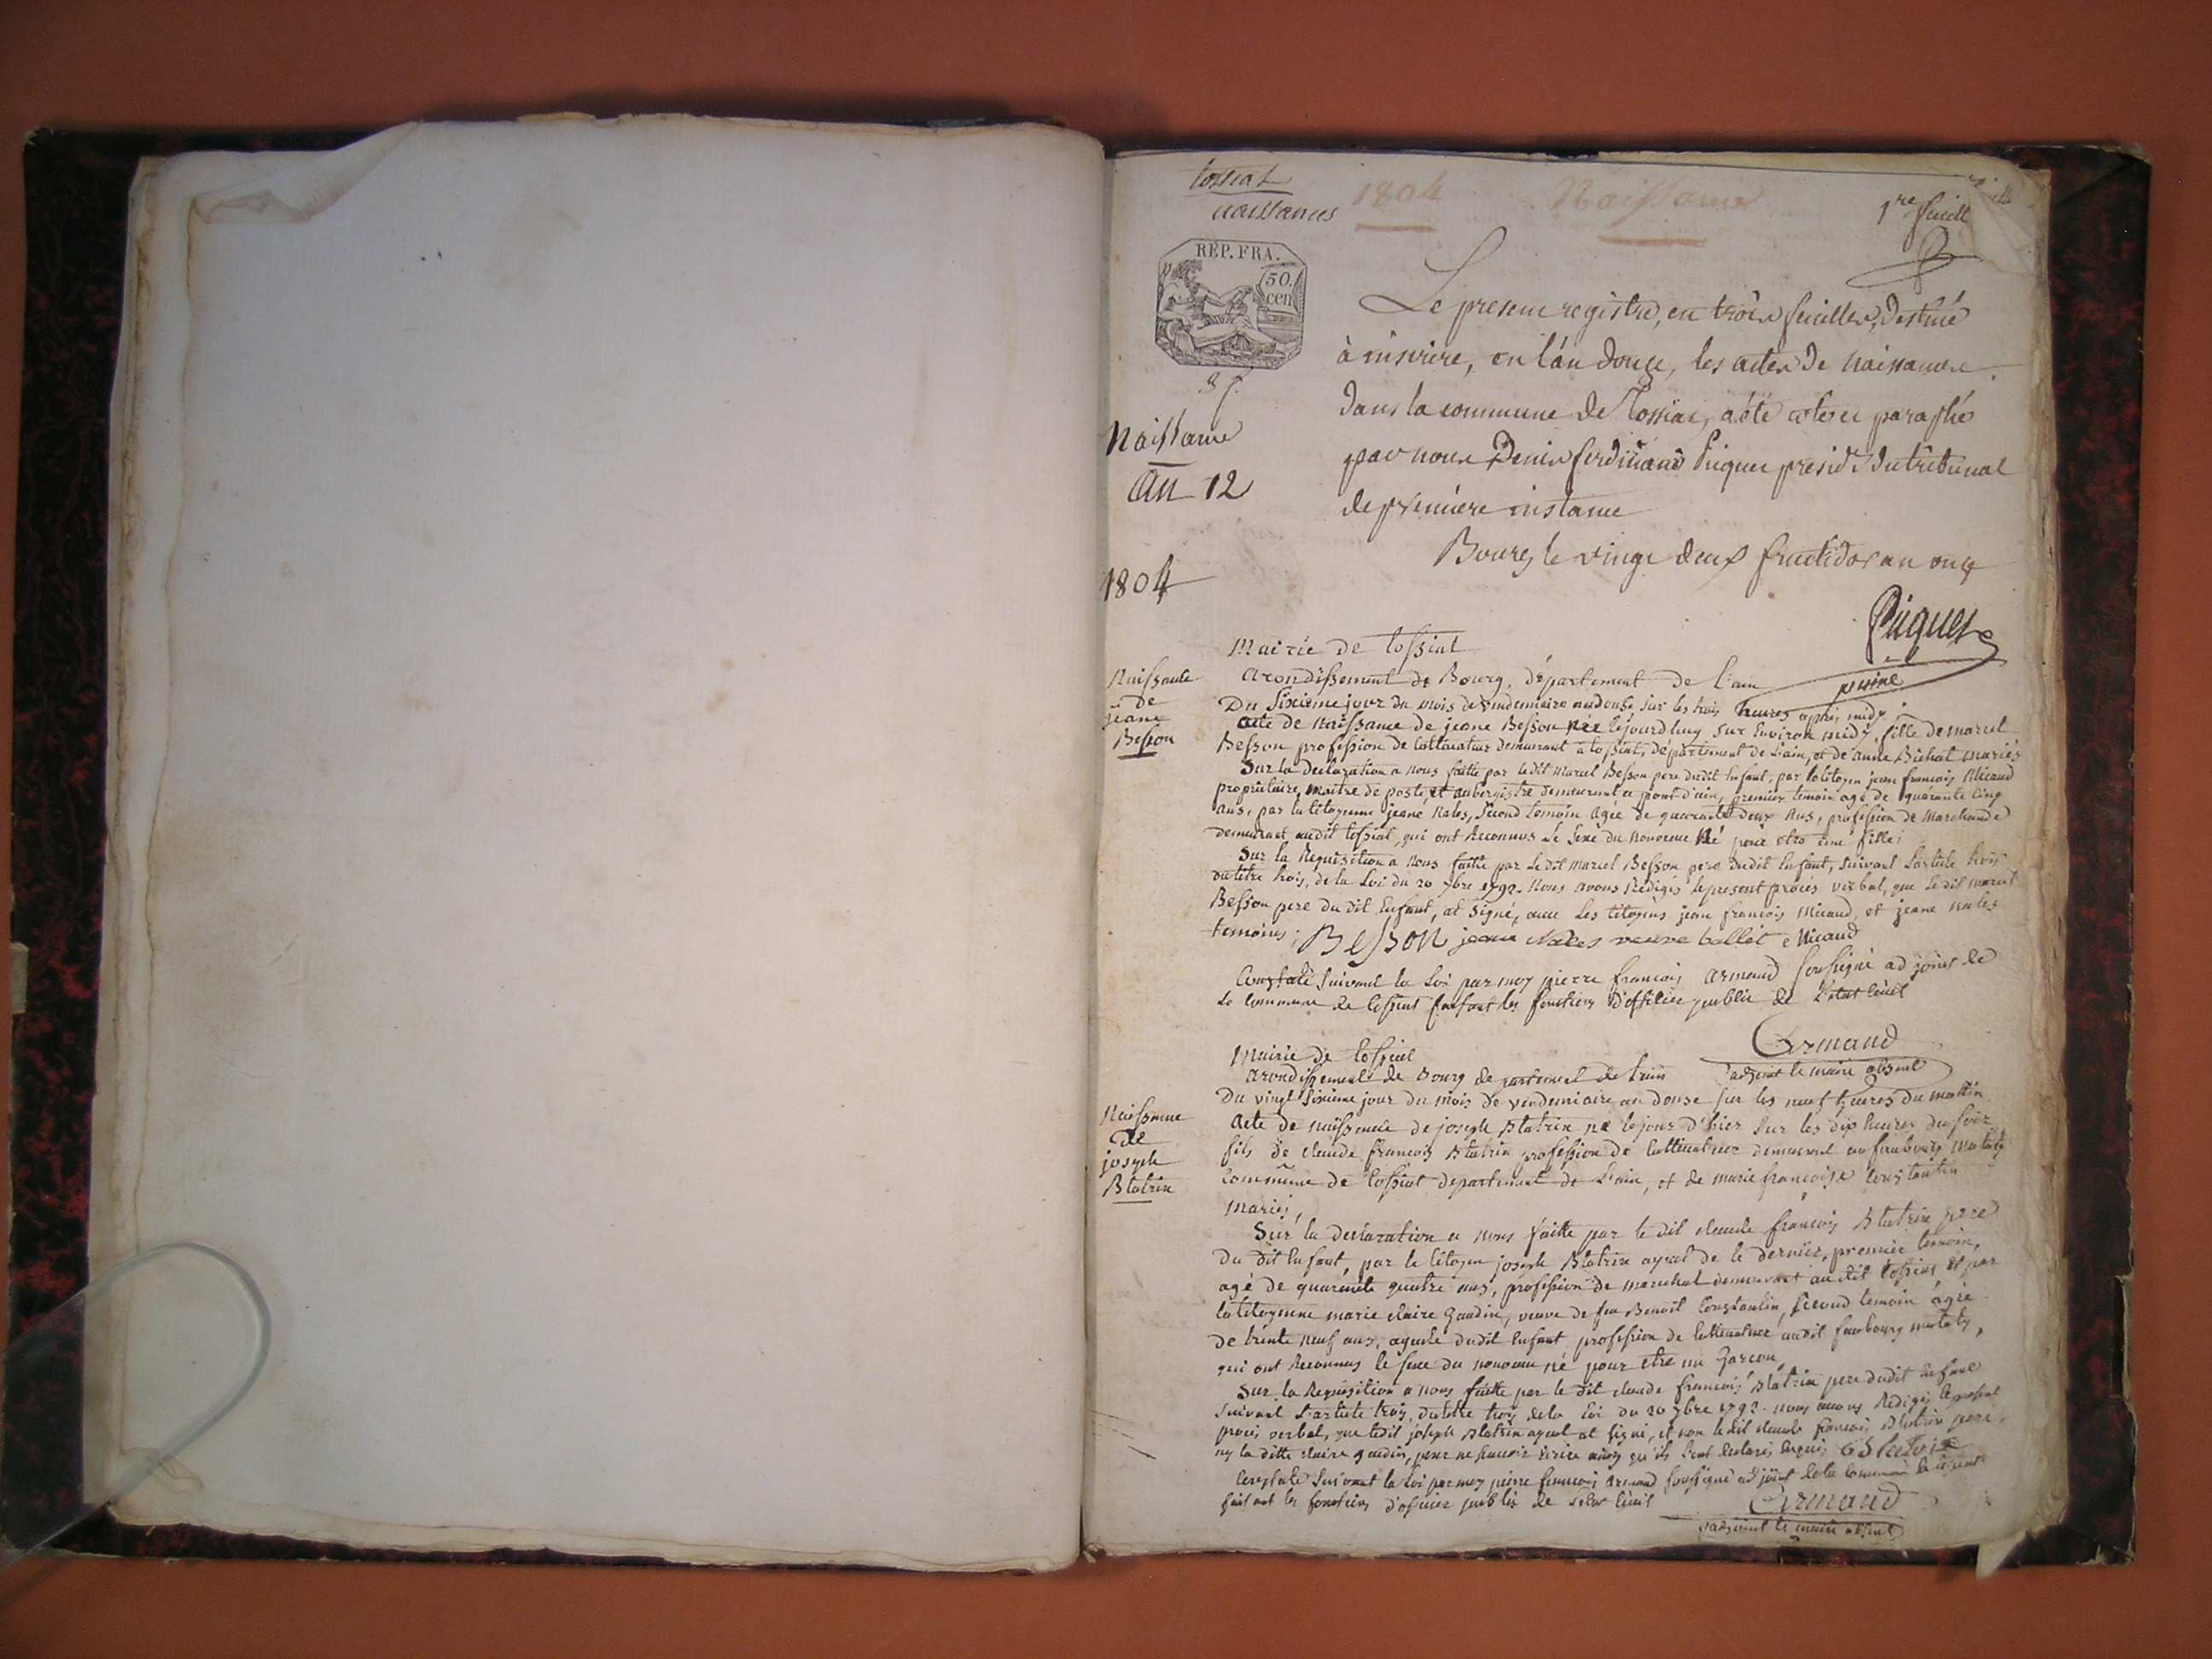 tossiat
naissances
1804 Naissance
1re feuille
REP. FRA.
50. cen
Le present registre, en trois feuilles, destiné
à inscrire, en l'an douze, les actes de naissance
dans la commune de Tossiat, a été coté et paraphé
par nous Denis ferdinand Piquet présidt du tribunal
de première instance
Bourg le vingt deux fructidor an onze
Piquet
Naissance
an 12
1804
Mairie de tossiat
Naissance
de
jeane
Besson
arondissement de Bourg, département de L'ain
Du sixieme jour du mois de vendemiaire an douse sur les trois heures après midy
acte de naissance de jeane Besson née cejourdhuy sur environ midy, fille de marcel
Besson profession de cultivateur demeurant a tossiat, département de L'ain, et de anne Bichat mariés
Sur la declaration a nous faitte par ledit marcel Besson pere dudit enfant, par le citoyen jean françois Micaud
propriétaire, maitre de poste, et aubergiste demeurant a pont d'ain, premier temoin agé de quarante cinq
ans, par la citoyenne jeane Nales, second temoin agée de quarante deux ans, profession de marchande
demeurant audit tossiat, qui ont reconnus le sexe du nouveau né pour etre une fille;
Sur la Requisition a nous faitte par le dit marcel Besson pere dudit enfant, suivant l'article trois
du titre trois, de la Loi du 20 7bre 1792. nous avons rédigés le present procès verbal, que le dit marcel
Besson pere du dit enfant, at signé, avec les citoyens jean françois micaud, et jeane nales
temoins; BESSON jeane Nales veuve ballet Micaud
Constaté suivant la Loi par moy pierre françois armand soussigné adjoint de
la commune de tossiat faisant les fonctions d'officier public de L'etat civil
Armand
adjoint le maire absent
Mairie de tossiat
arondissement de Bourg departement de L'ain
Naissance
de
joseph
Blatrix
Du vingt sixieme jour du mois de vendemiaire an douse sur les neuf heures du mattin
acte de naissance de joseph Blatrix né le jour d'hier sur les dix heures du soir
fils de claude françois Blatrix profession de cultivateur demeurant au faubourg
commune de tossiat departement de L'ain, et de marie françoise constantin
mariés,
Sur la declaration a nous faitte par le dit claude françois Blatrix pere
du dit enfant, par le citoyen joseph Blatrix ayeul de le dernier, premier temoin,
agé de quarante quatre ans, profession de marechal demeurant au dit tossiat et par
la citoyenne marie claire Gaudin, veuve de feu Benoit Constantin, second temoin agée
de trente neuf ans, ayeule dudit enfant profession de cultivatrice audit faubourg
qui ont reconnus le sexe du nouveau né pour etre un garcon
Sur la Requisition a nous faitte par le dit claude françois Blatrix pere dudit enfant
suivant l'article trois, du titre trois de la Loi du 20 7bre 1792. nous avons rédigés le present
procès verbal, que ledit joseph Blatrix ayeul at signé, et non le dit claude françois Blatrix pere,
ny la ditte claire gaudin, pour ne savoir ecrire ainsy qu'ils l'ont declarés
Constaté suivant la Loi par moy pierre françois armand soussigné adjoint de la commune de tossiat
faisant les fonctions d'officier public de L'etat civil
Armand
adjoint le maire absent